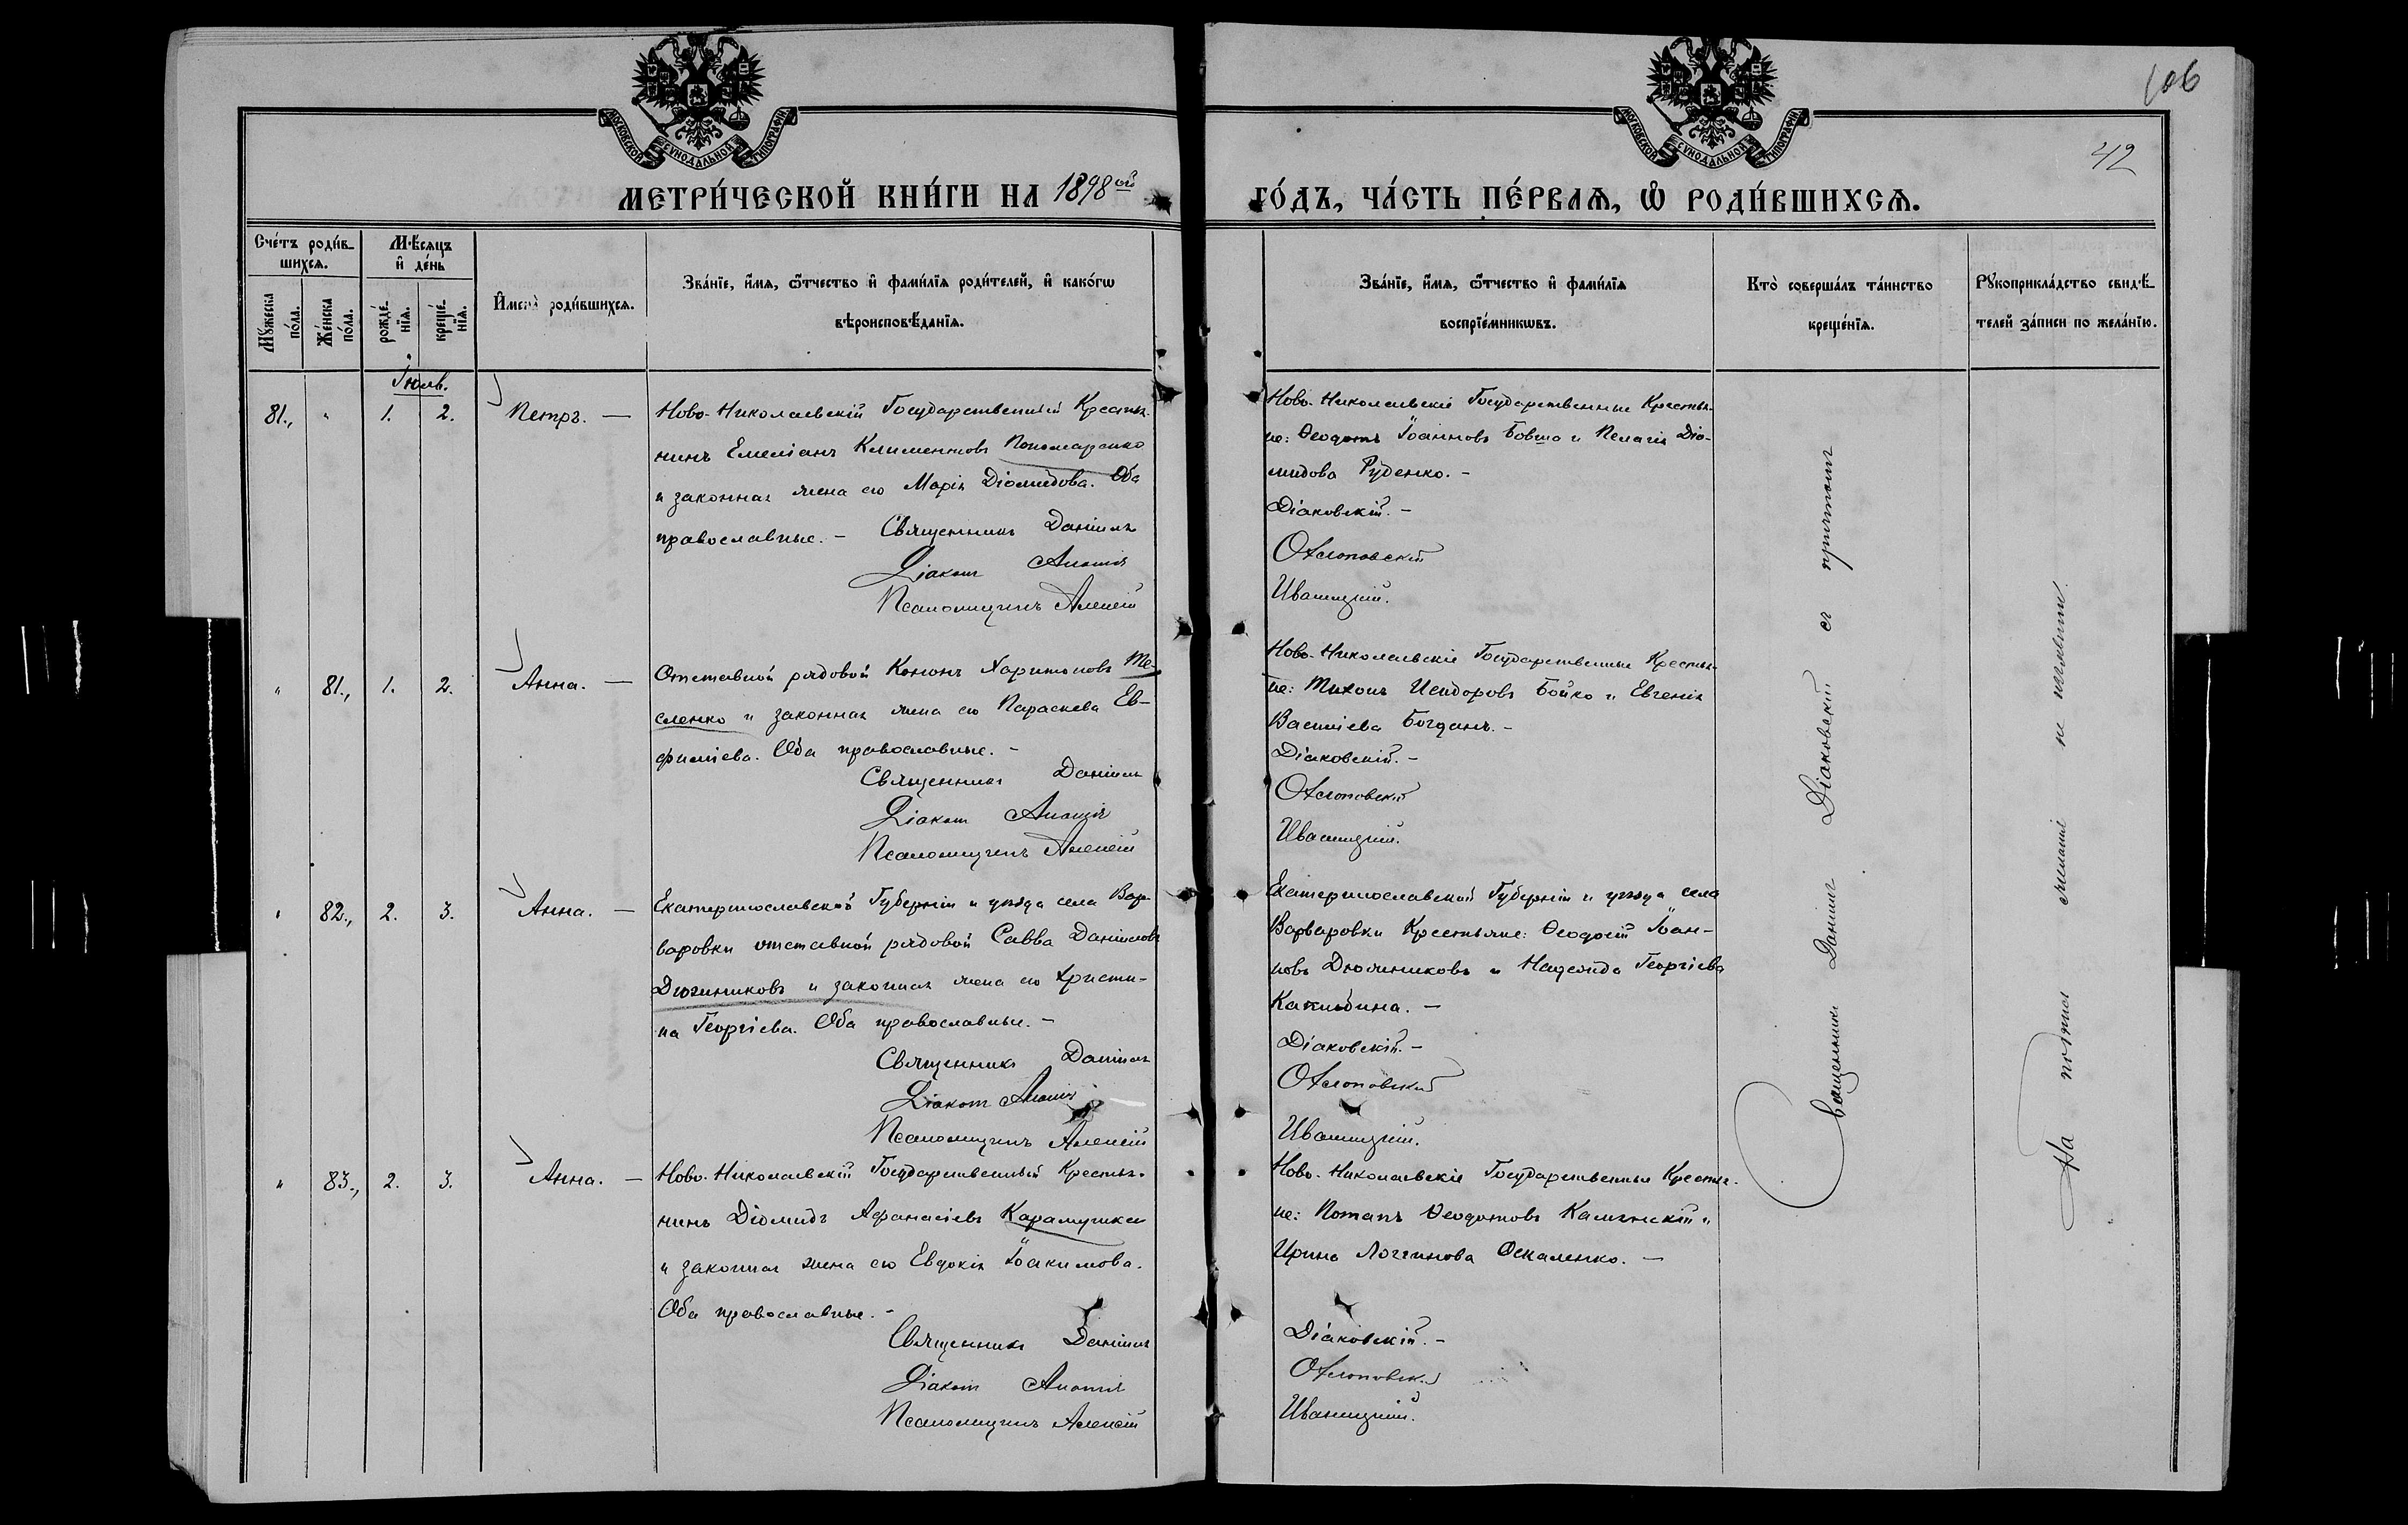 106
42
МОСКОВСКОЙ СѴНОДАЛЬНОЙ ТИПОГРАФІИ
МОСКОВСКОЙ СѴНОДАЛЬНОЙ ТИПОГРАФІИ
МЕТРИ́ЧЕСКОЙ КНИ́ГИ НА 1898ой
ГО́ДЪ, ЧА́СТЬ ПЕ́РВАѦ, Ѡ҆ РОДИ́ВШИХСѦ.
Сче́тъ роди́в-
шихсѧ.
Мꙋжеска по́ла.
Же́нска по́ла.
Мѣ́сѧцъ
и҆ де́нь
рожде́-
нїѧ.
креще́-
нїѧ.
И҆мена̀ роди́вшихсѧ.
Зва́нїе, и҆́мѧ, ѻ҆́тчество и҆ фами́лїѧ роди́телей, и҆ како́гѡ
вѣроисповѣ́данїѧ.
Зва́нїе, и҆́мѧ, ѻ҆́тчество и҆ фами́лїѧ
воспрїе́мникѡвъ.
Кто̀ соверша́лъ та́инство
креще́нїѧ.
Рꙋкоприкла́дство свидѣ́-
телей за́писи по жела́нїю.
Іюль.
81., " 1. 2. Петръ. —
Ново-Николаевскій Государственный Крестья-
нинъ Емеліанъ Климентовъ Пономаренко
и законная жена его Марія Діомидова. Оба
православные. – Священникъ Даніилъ
Діаконъ Ананія
Псаломщикъ Алексій
Ново-Николаевскіе Государственные Крестья-
не: Ѳеодотъ Іоанновъ Бовша и Пелагія Діо-
мидова Руденко. –
Діаковскій. –
Ивашицкій.
" 81., 1. 2. Анна. —
Отставной рядовой Кононъ Харитоновъ Те-
сленко и законная жена его Параскева Ев-
филіева. Оба православные. –
Священникъ Даніилъ
Діаконъ Ананія
Псаломщикъ Алексій
Ново-Николаевскіе Государственные Крестья-
не: Тихонъ Исидоровъ Бойко и Евгенія
Василіева Богданъ. –
Діаковскій. –
Ивашицкій.
" 82., 2. 3. Анна. —
Екатеринославской Губерніи и уѣзда села Вар-
варовки отставной рядовой Савва Даніиловъ
Дюжниковъ и законная жена его Христи-
на Георгіева. Оба православные. –
Священникъ Даніилъ
Діаконъ Ананія
Псаломщикъ Алексій
Екатеринославской Губерніи и уѣзда села
Варваровки Крестьяне: Ѳеодосій Іоан-
новъ Дюжниковъ и Надежда Георгіева
Діаковскій. –
Ивашицкій.
" 83., 2. 3. Анна. —
Ново-Николаевскій Государственный Крестья-
нинъ Діомидъ Афанасіевъ Карамушка
и законная жена его Евдокія Іоакимова.
Оба православные. –
Священникъ Даніилъ
Діаконъ Ананія
Псаломщикъ Алексій
Ново-Николаевскіе Государственные Крестья-
не: Потапъ Ѳеодотовъ Калинскій и
Ирина Логгинова Оскаленко. —
Діаковскій. –
Ивашицкій.
Священникъ Даніилъ Діаковскій съ причтомъ
На подписи желанія не изъявили.